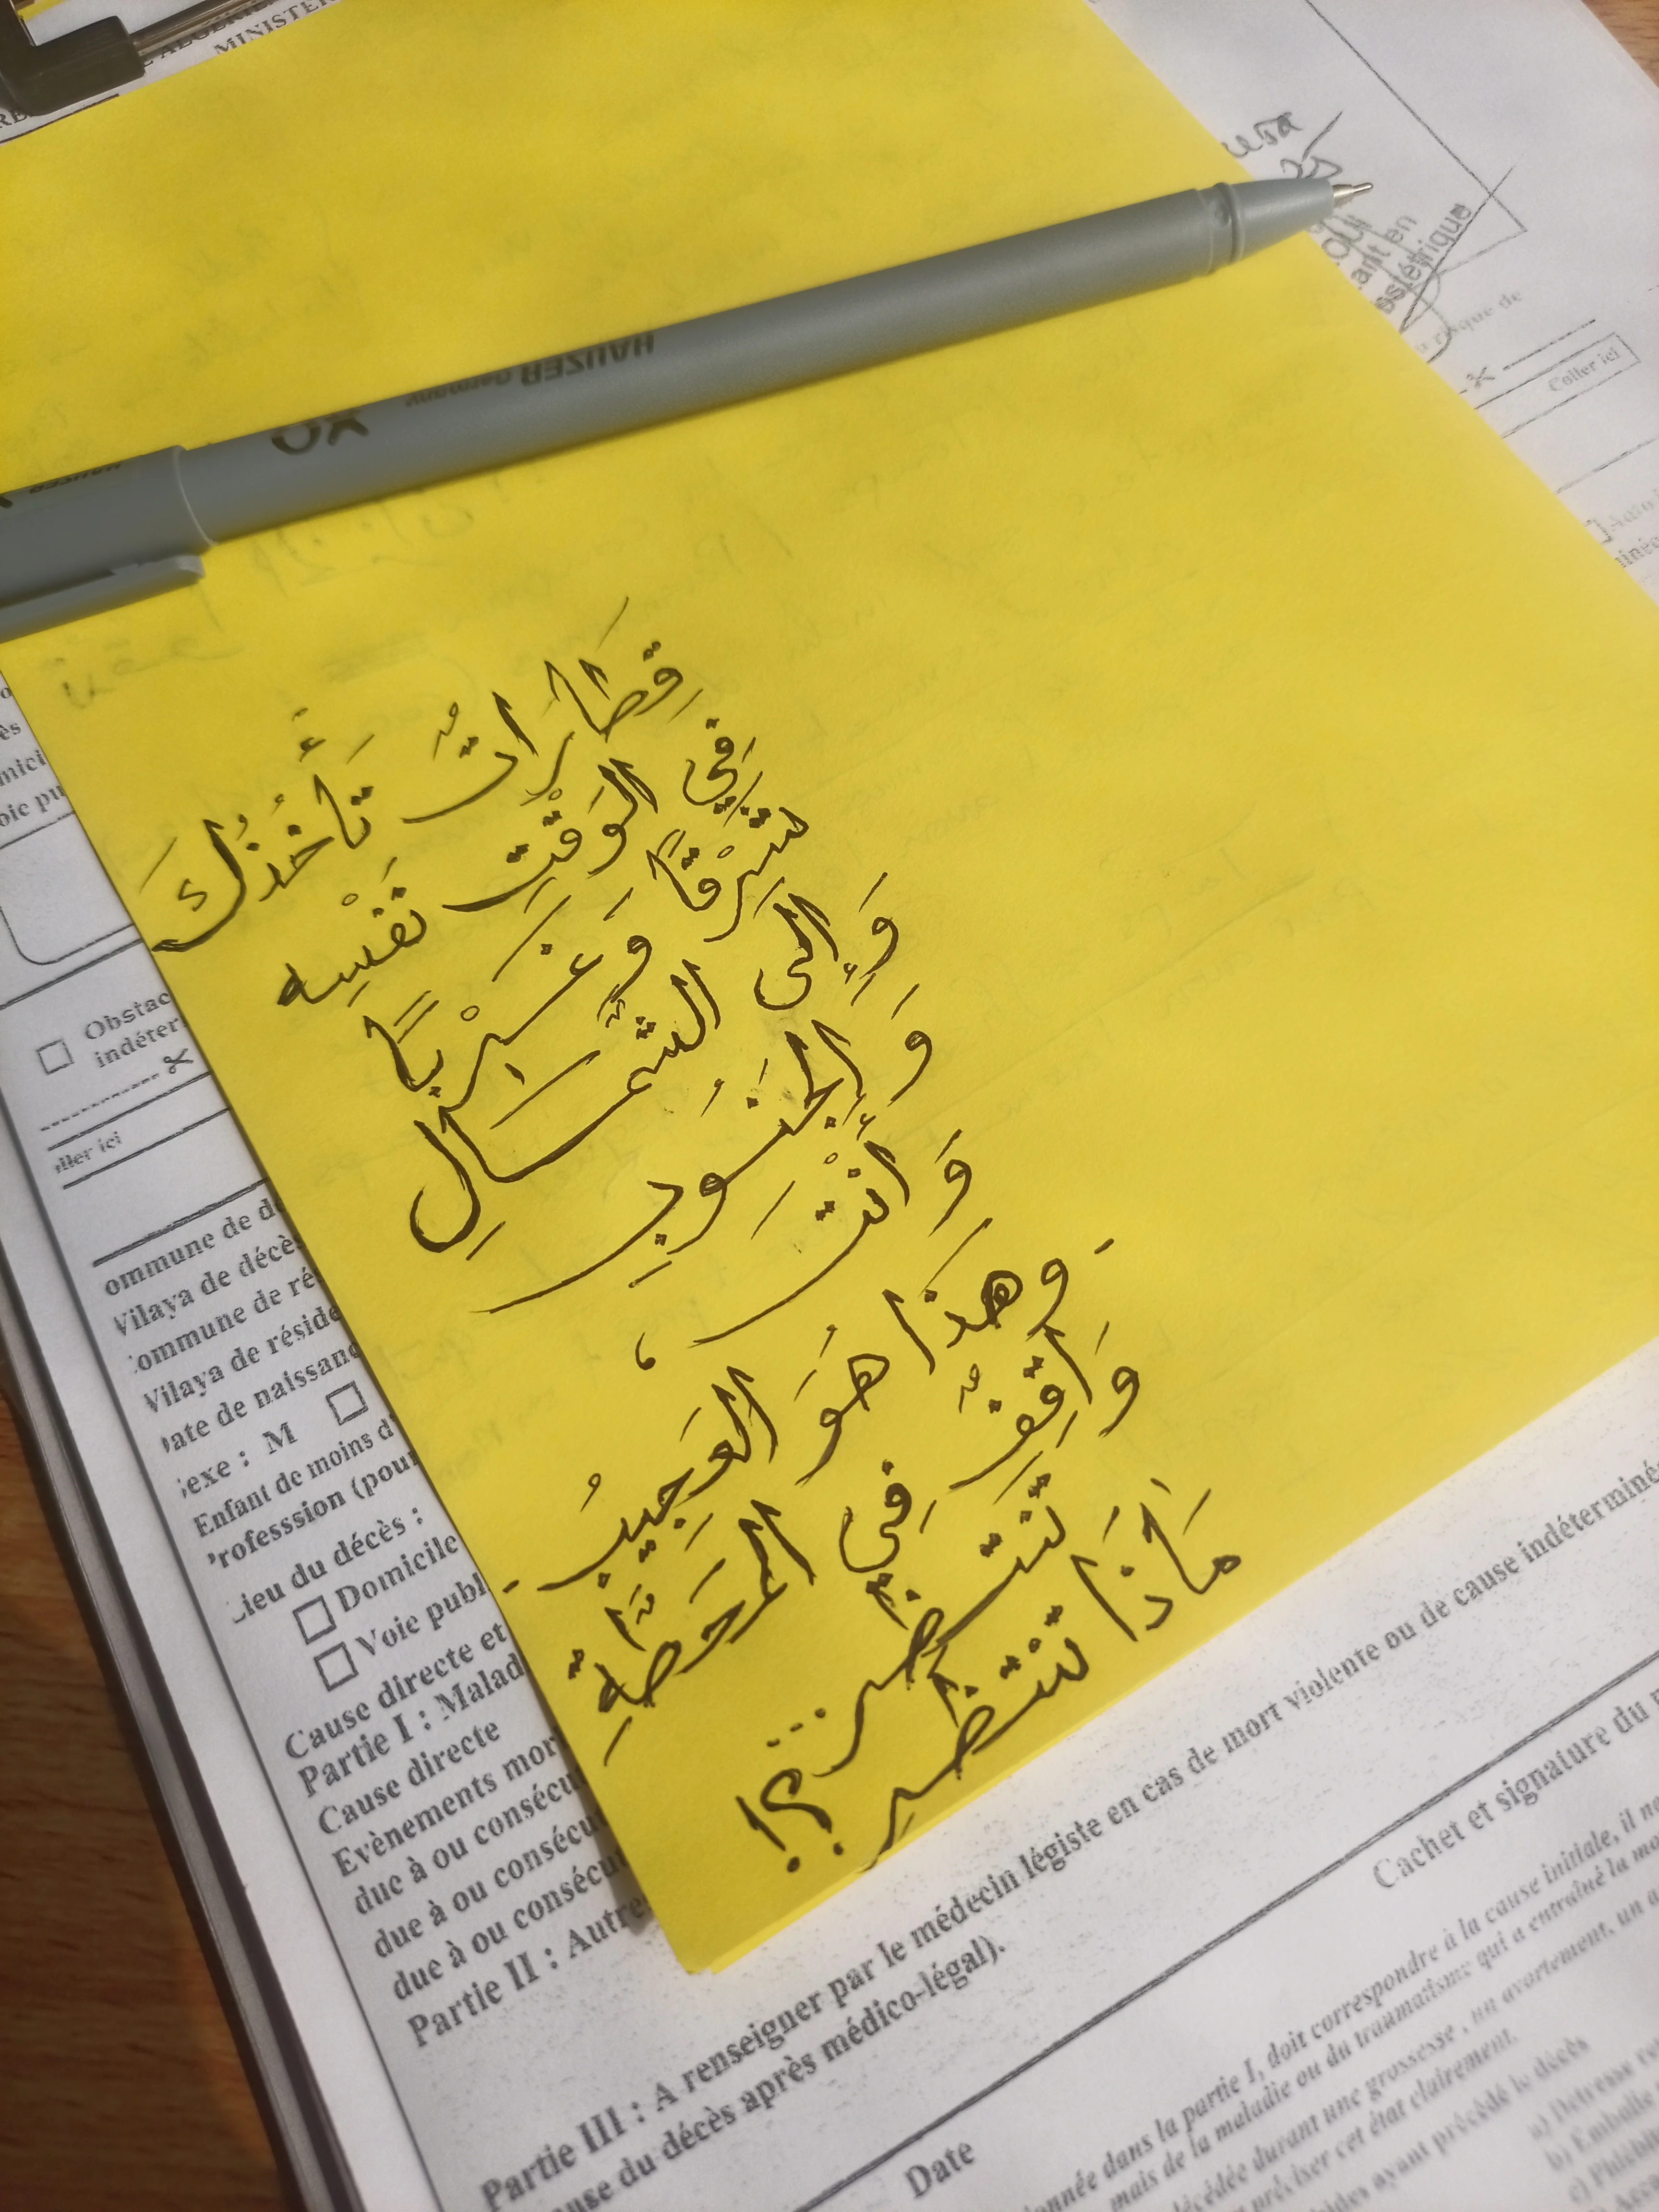 MINISTER
HAUZER Germany
XO
HAUZER
ant en
Coller ici
قِطَارَاتٌ تَأْخُذُكَ
فِي الوَقْتِ نَفْسِه
شَرْقًا وَغَرْبًا
وَإِلَى الشَّمَالِ
وَالجَنُوبِ
وَأَنْتَ،
-وهَذَا هُوَ العَجِيبُ-
وَاقِفٌ فِي المَحَطَّةِ
تَنتظر...؟!
مَاذَا تَنْتَظر
Obstac
indéter
ller ici
ommune de d
Wilaya de décès
ommune de ré
Wilaya de réside
ate de naissanc
exe : M
Enfant de moins d'
rofesssion (pour
ieu du décès :
Domicile
Voie publ
Cause directe et
Partie I : Malad
Cause directe
Evènements mor
due à ou consécu
due à ou consécu
due à ou consécu
Partie II : Autre
Partie III : A renseigner par le médecin légiste en cas de mort violente ou de cause indéterminé
use du décès après médico-légal).
Date
Cachet et signature du
ionnée dans la partie I, doit correspondre à la cause initiale, il
mais de la maladie ou du traumatisme qui a entraîné la mo
décédée durant une grossesse, un avortement, un a
préciser cet état clairement.
ayant précédé le décès